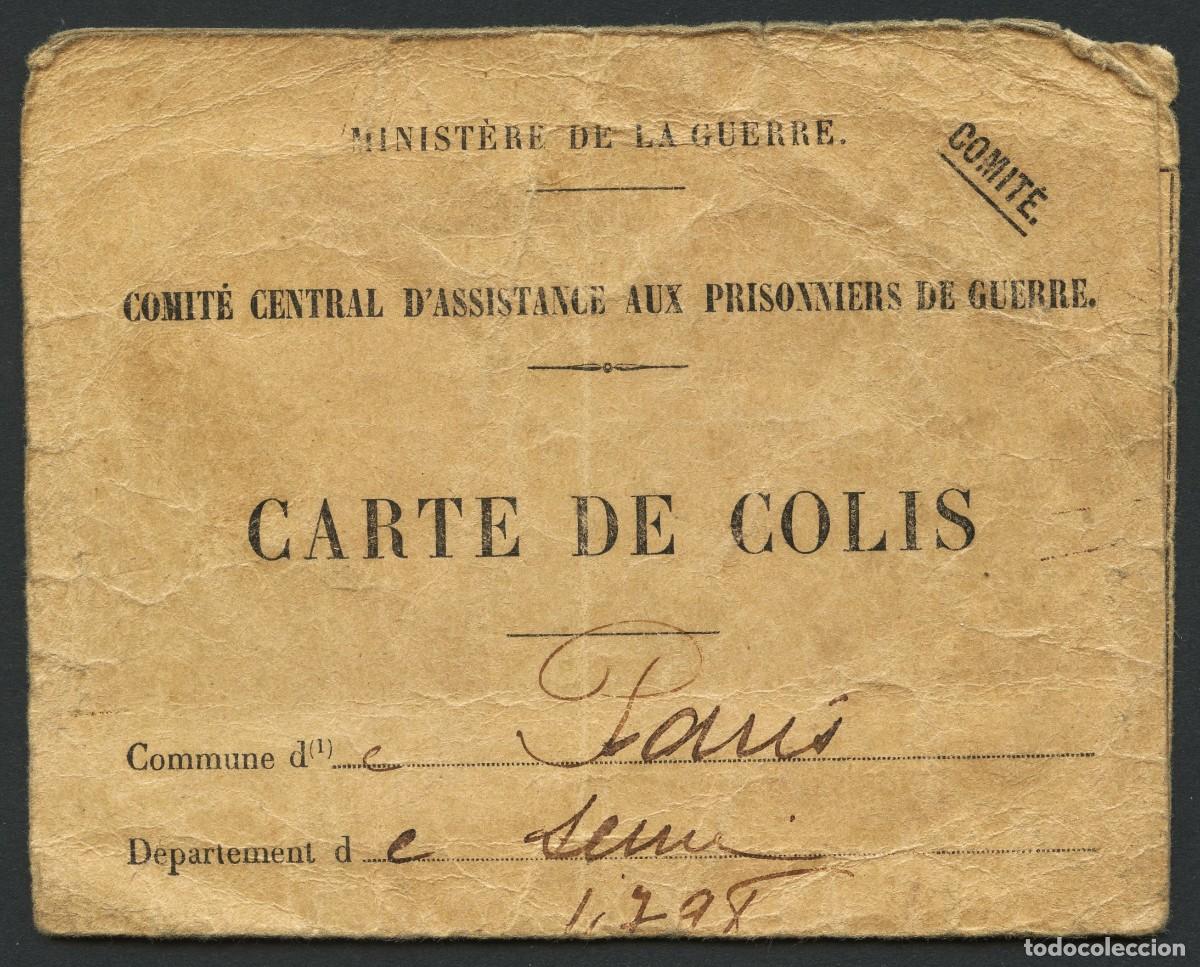 MINISTÈRE DE LA GUERRE.
COMITÉ.
COMITÉ CENTRAL D'ASSISTANCE AUX PRISONNIERS DE GUERRE.
CARTE DE COLIS
Commune d(1) e Paris
Département d e Seine
1,798
todocoleccion